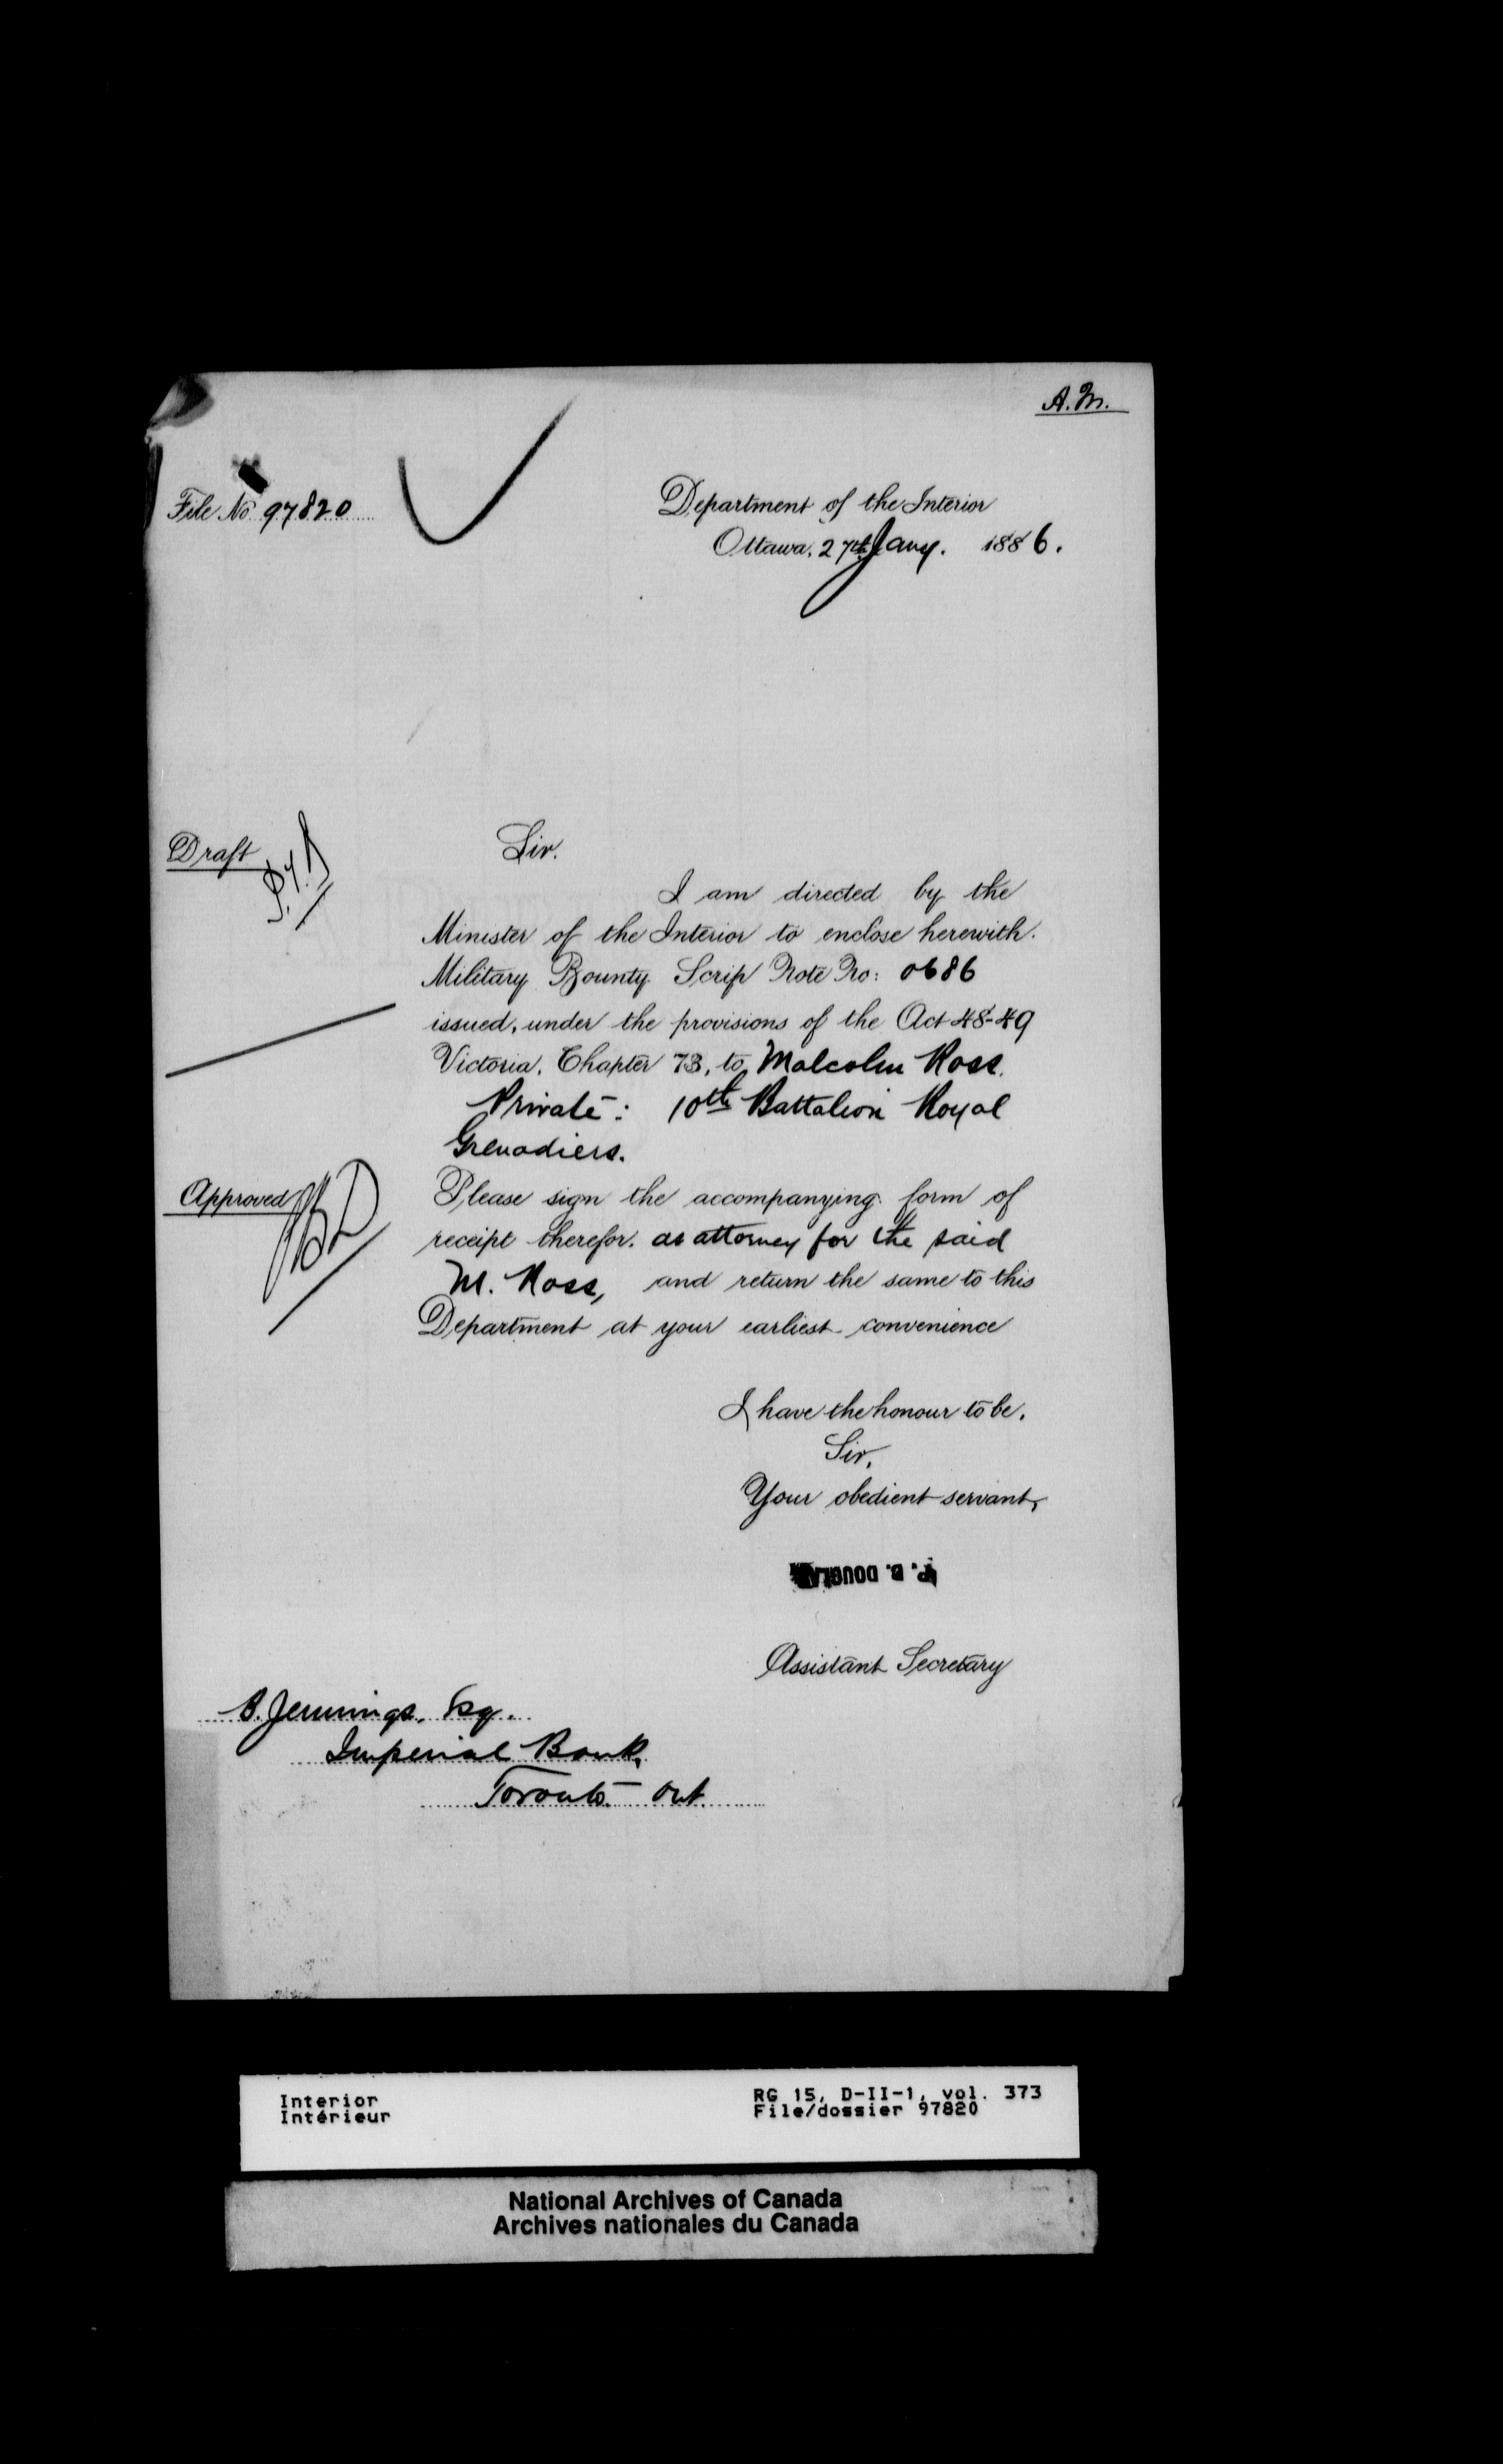 A. M.
File No 97820
Department of the Interior
Ottawa, 27th Jany. 1886.
Draft
Sir.
I am directed by the
Minister of the Interior to enclose herewith.
Military Bounty Scrip Note No: 0686
issued, under the provisions of the Act 48-49
Victoria, Chapter 73, to Malcolm Ross.
Private: 10th Battalion Royal
Grenadiers.
Approved
Please sign the accompanying form of
receipt therefor. as attorney for the said
M. Ross, and return the same to this
Department at your earliest convenience
I have the honour to be,
Sir,
Your obedient servant,
P. B. DOUGLAS
Assistant Secretary
B. Jennings, Esq.
Imperial Bank,
Toronto Ont.
Interior
Intérieur
RG 15, D-II-1, vol. 373
File/dossier 97820
National Archives of Canada
Archives nationales du Canada